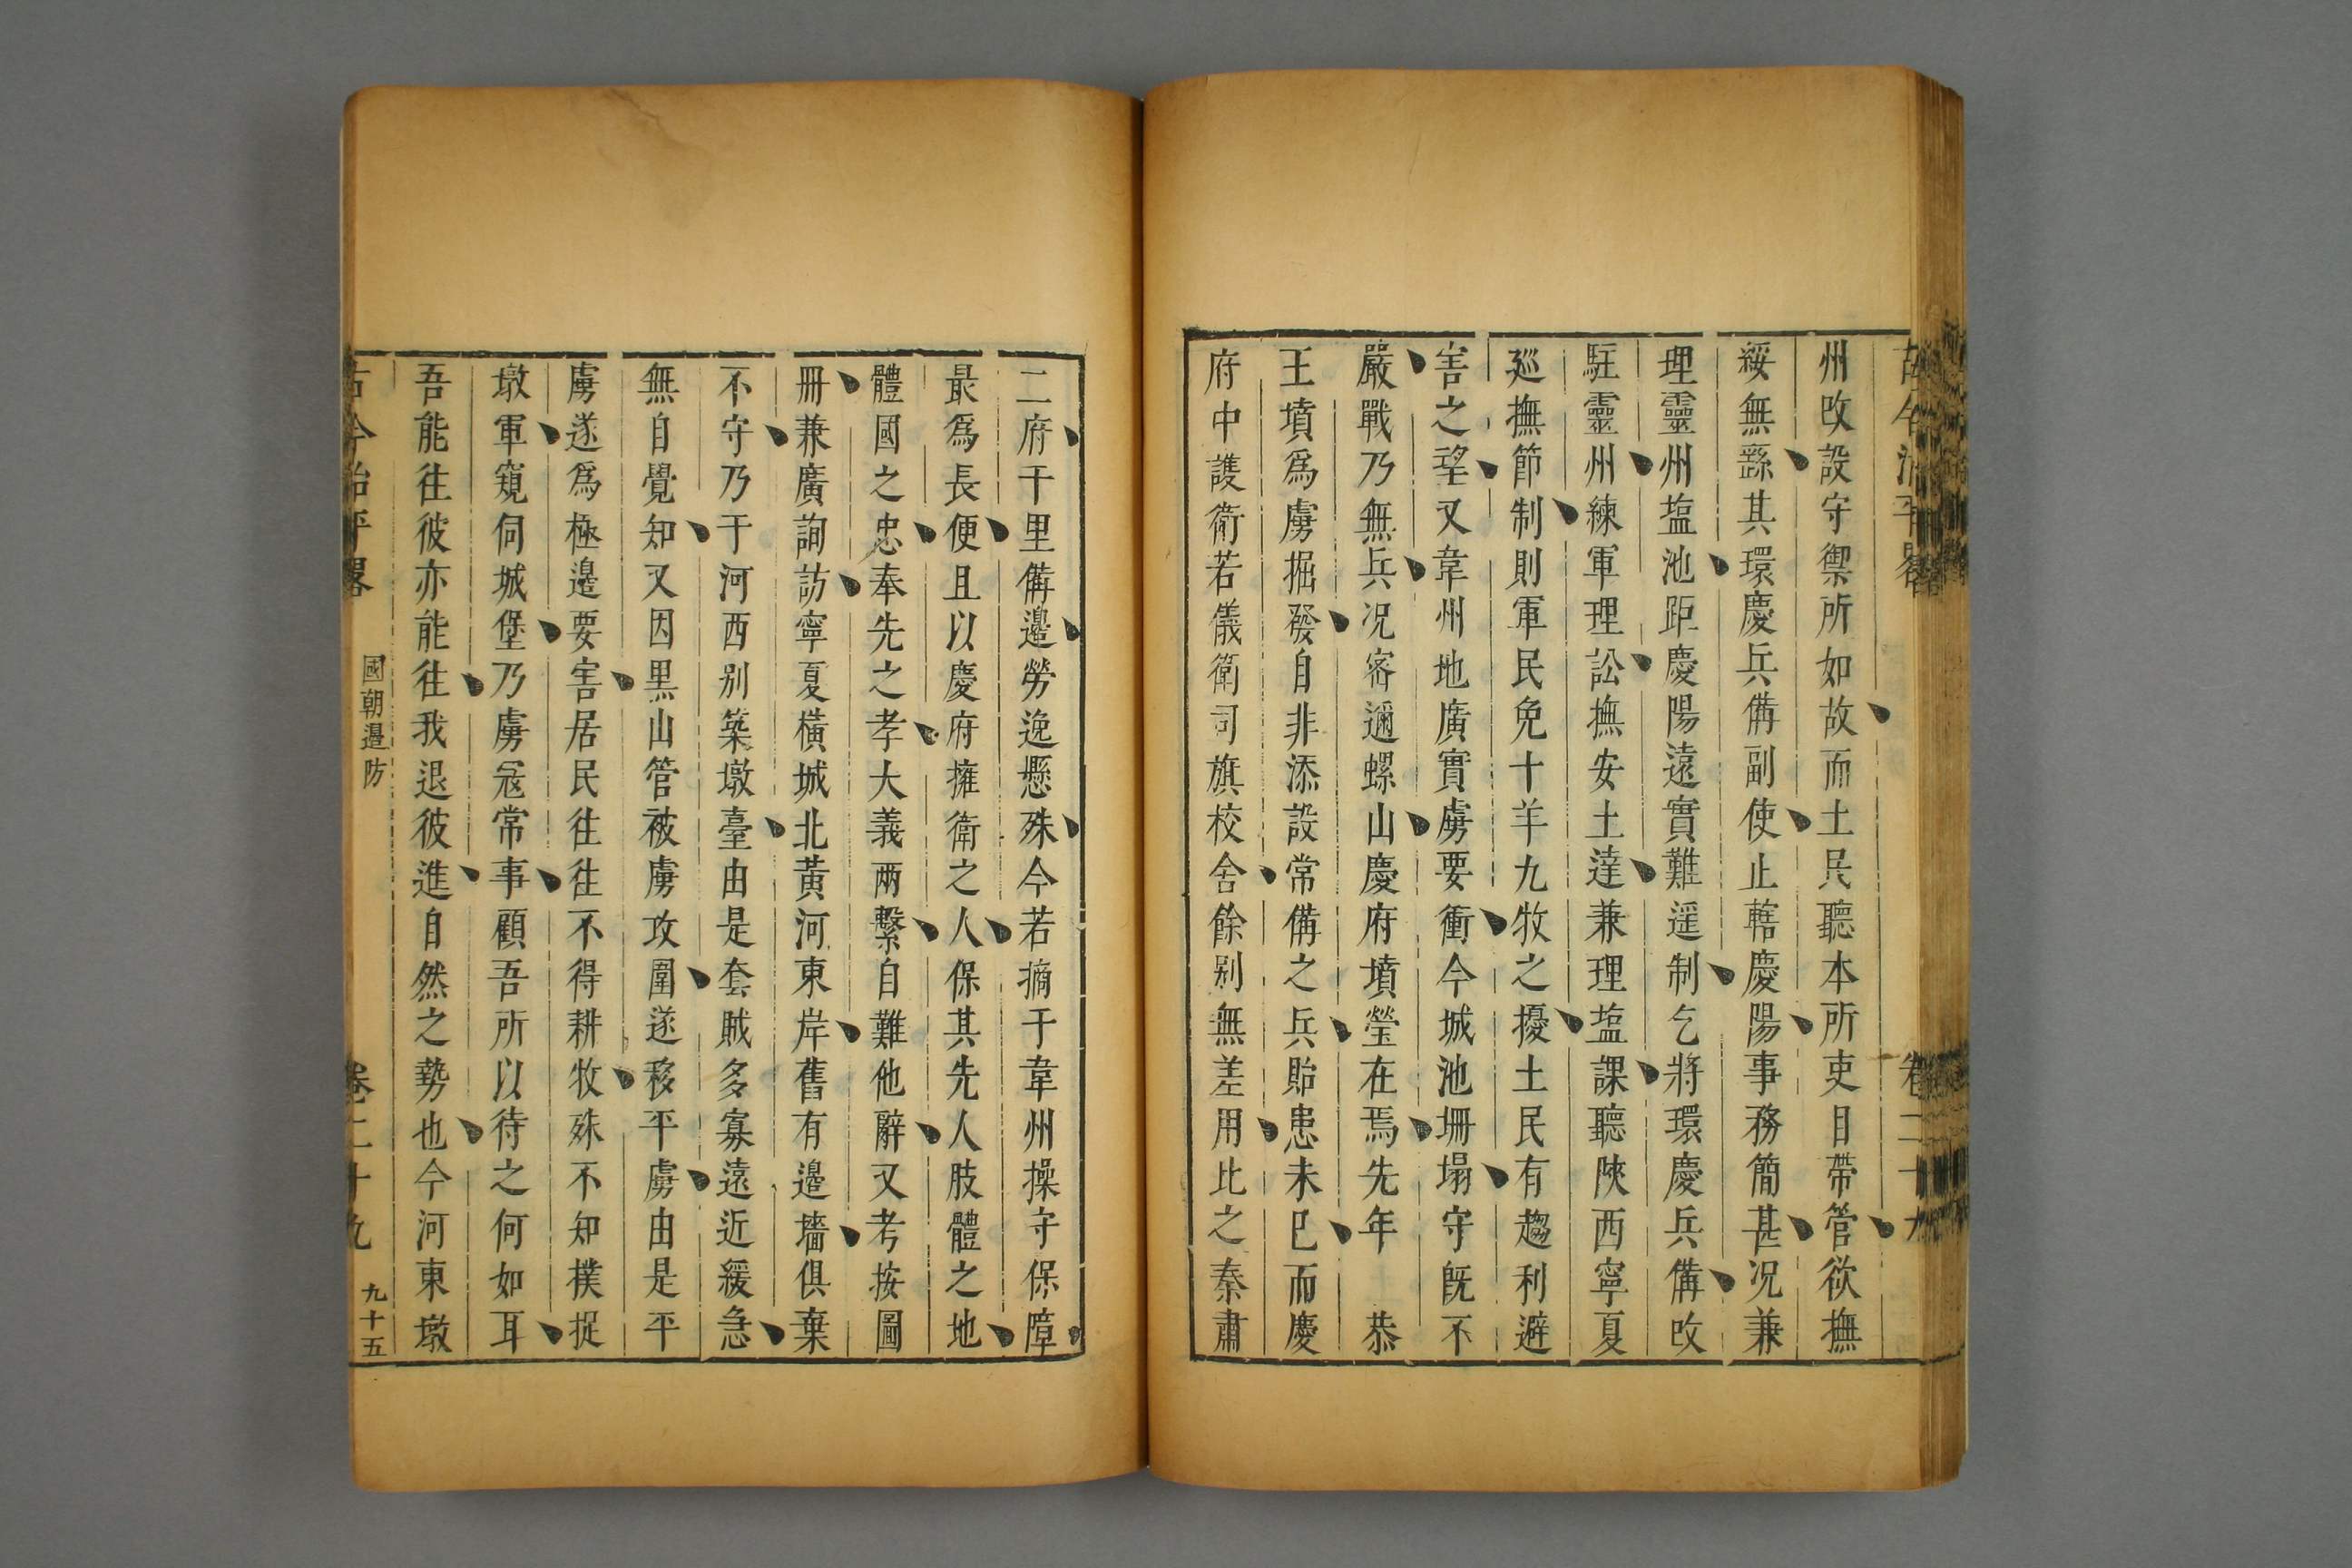 古今治平畧 卷二十九
州改設守禦所如故而土民聽本所吏目帶管欲撫
綏無繇其環慶兵備副使止轄慶陽事務簡甚况兼
理靈州塩池距慶陽遠實難遥制乞將環慶兵備改
駐靈州練軍理訟撫安土達兼理塩課聽陝西寧夏
廵撫節制則軍民免十羊九牧之擾土民有趨利避
害之望又韋州地廣實虜要衝今城池坍塌守旣不
嚴戰乃無兵况密邇螺山慶府墳瑩在焉先年 恭
王墳爲虜掘發自非添設常備之兵貽患未巳而慶
府中護衛若儀衛司旗校舍餘别無差用比之秦肅
二府千里備邊勞逸懸殊今若摘于韋州操守保障
最爲長便且以慶府擁衛之人保其先人肢體之地
體國之忠奉先之孝大義兩繫自難他辭又考按圖
冊兼廣詢訪寧夏橫城北黃河東岸舊有邊墻俱棄
不守乃于河西别築墩臺由是套賊多寡遠近緩急
無自覺知又因黑山管被虜攻圍遂移平虜由是平
虜遂爲極邊要害居民往往不得耕牧殊不知撲捉
墩軍窺伺城堡乃虜冦常事顧吾所以待之何如耳
吾能往彼亦能往我退彼進自然之勢也今河東墩
古今治平畧 國朝邊防 卷二十九 九十五